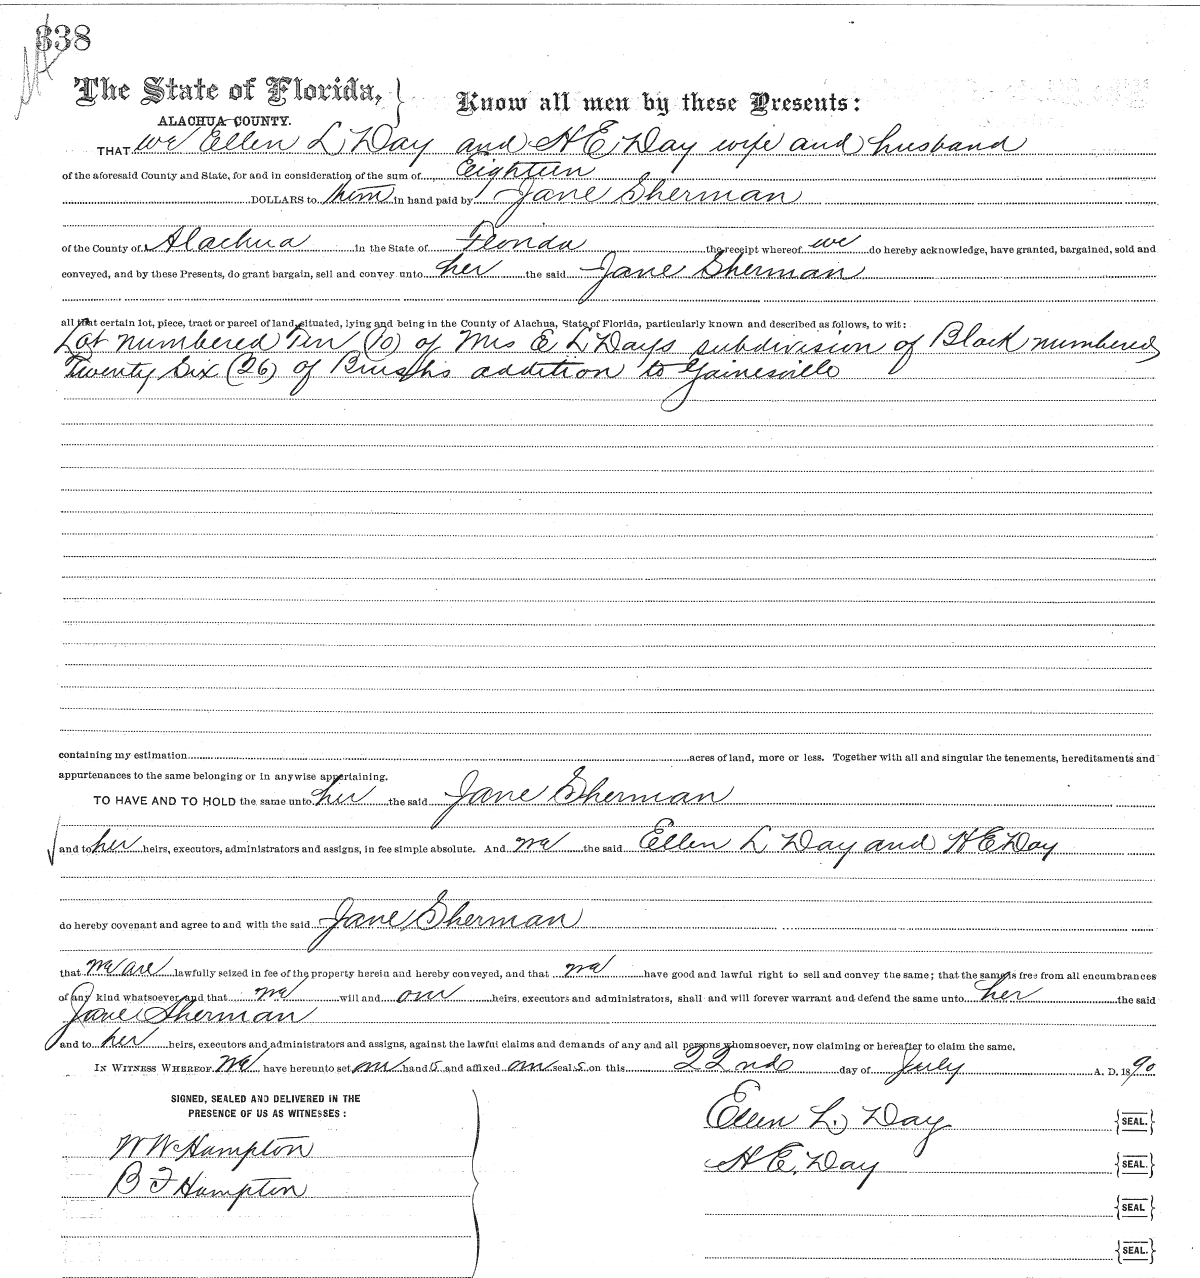 338
The State of Florida,
ALACHUA COUNTY.
Know all men by these Presents:
THAT we Ellen L Day and H E Day wife and husband
of the aforesaid County and State, for and in consideration of the sum of Eighteen
DOLLARS to them in hand paid by Jane Sherman
of the County of Alachua in the State of Florida the receipt whereof we do hereby acknowledge, have granted, bargained, sold and
conveyed, and by these Presents, do grant bargain, sell and convey unto her the said Jane Sherman
all that certain lot, piece, tract or parcel of land, situated, lying and being in the County of Alachua, State of Florida, particularly known and described as follows, to wit:
Lot numbered Ten (10) of Mrs E L Days subdivision of Block numbered
Twenty Six (26) of Brushs addition to Gainesville
containing my estimation acres of land, more or less. Together with all and singular the tenements, hereditaments and
appurtenances to the same belonging or in anywise appertaining.
TO HAVE AND TO HOLD the same unto her the said Jane Sherman
and to her heirs, executors, administrators and assigns, in fee simple absolute. And we the said Ellen L Day and H E Day
do hereby covenant and agree to and with the said Jane Sherman
that we are lawfully seized in fee of the property herein and hereby conveyed, and that we have good and lawful right to sell and convey the same; that the same is free from all encumbrances
of any kind whatsoever and that we will and our heirs, executors and administrators, shall and will forever warrant and defend the same unto her the said
Jane Sherman
and to her heirs, executors and administrators and assigns, against the lawful claims and demands of any and all persons whomsoever, now claiming or hereafter to claim the same.
IN WITNESS WHEREOF we have hereunto set our hand s and affixed our seal s on this 22nd day of July A. D. 18 90
SIGNED, SEALED AND DELIVERED IN THE
PRESENCE OF US AS WITNESSES:
W W Hampton
B F Hampton
Ellen L. Day {SEAL.}
H E. Day {SEAL.}
{SEAL}
{SEAL.}